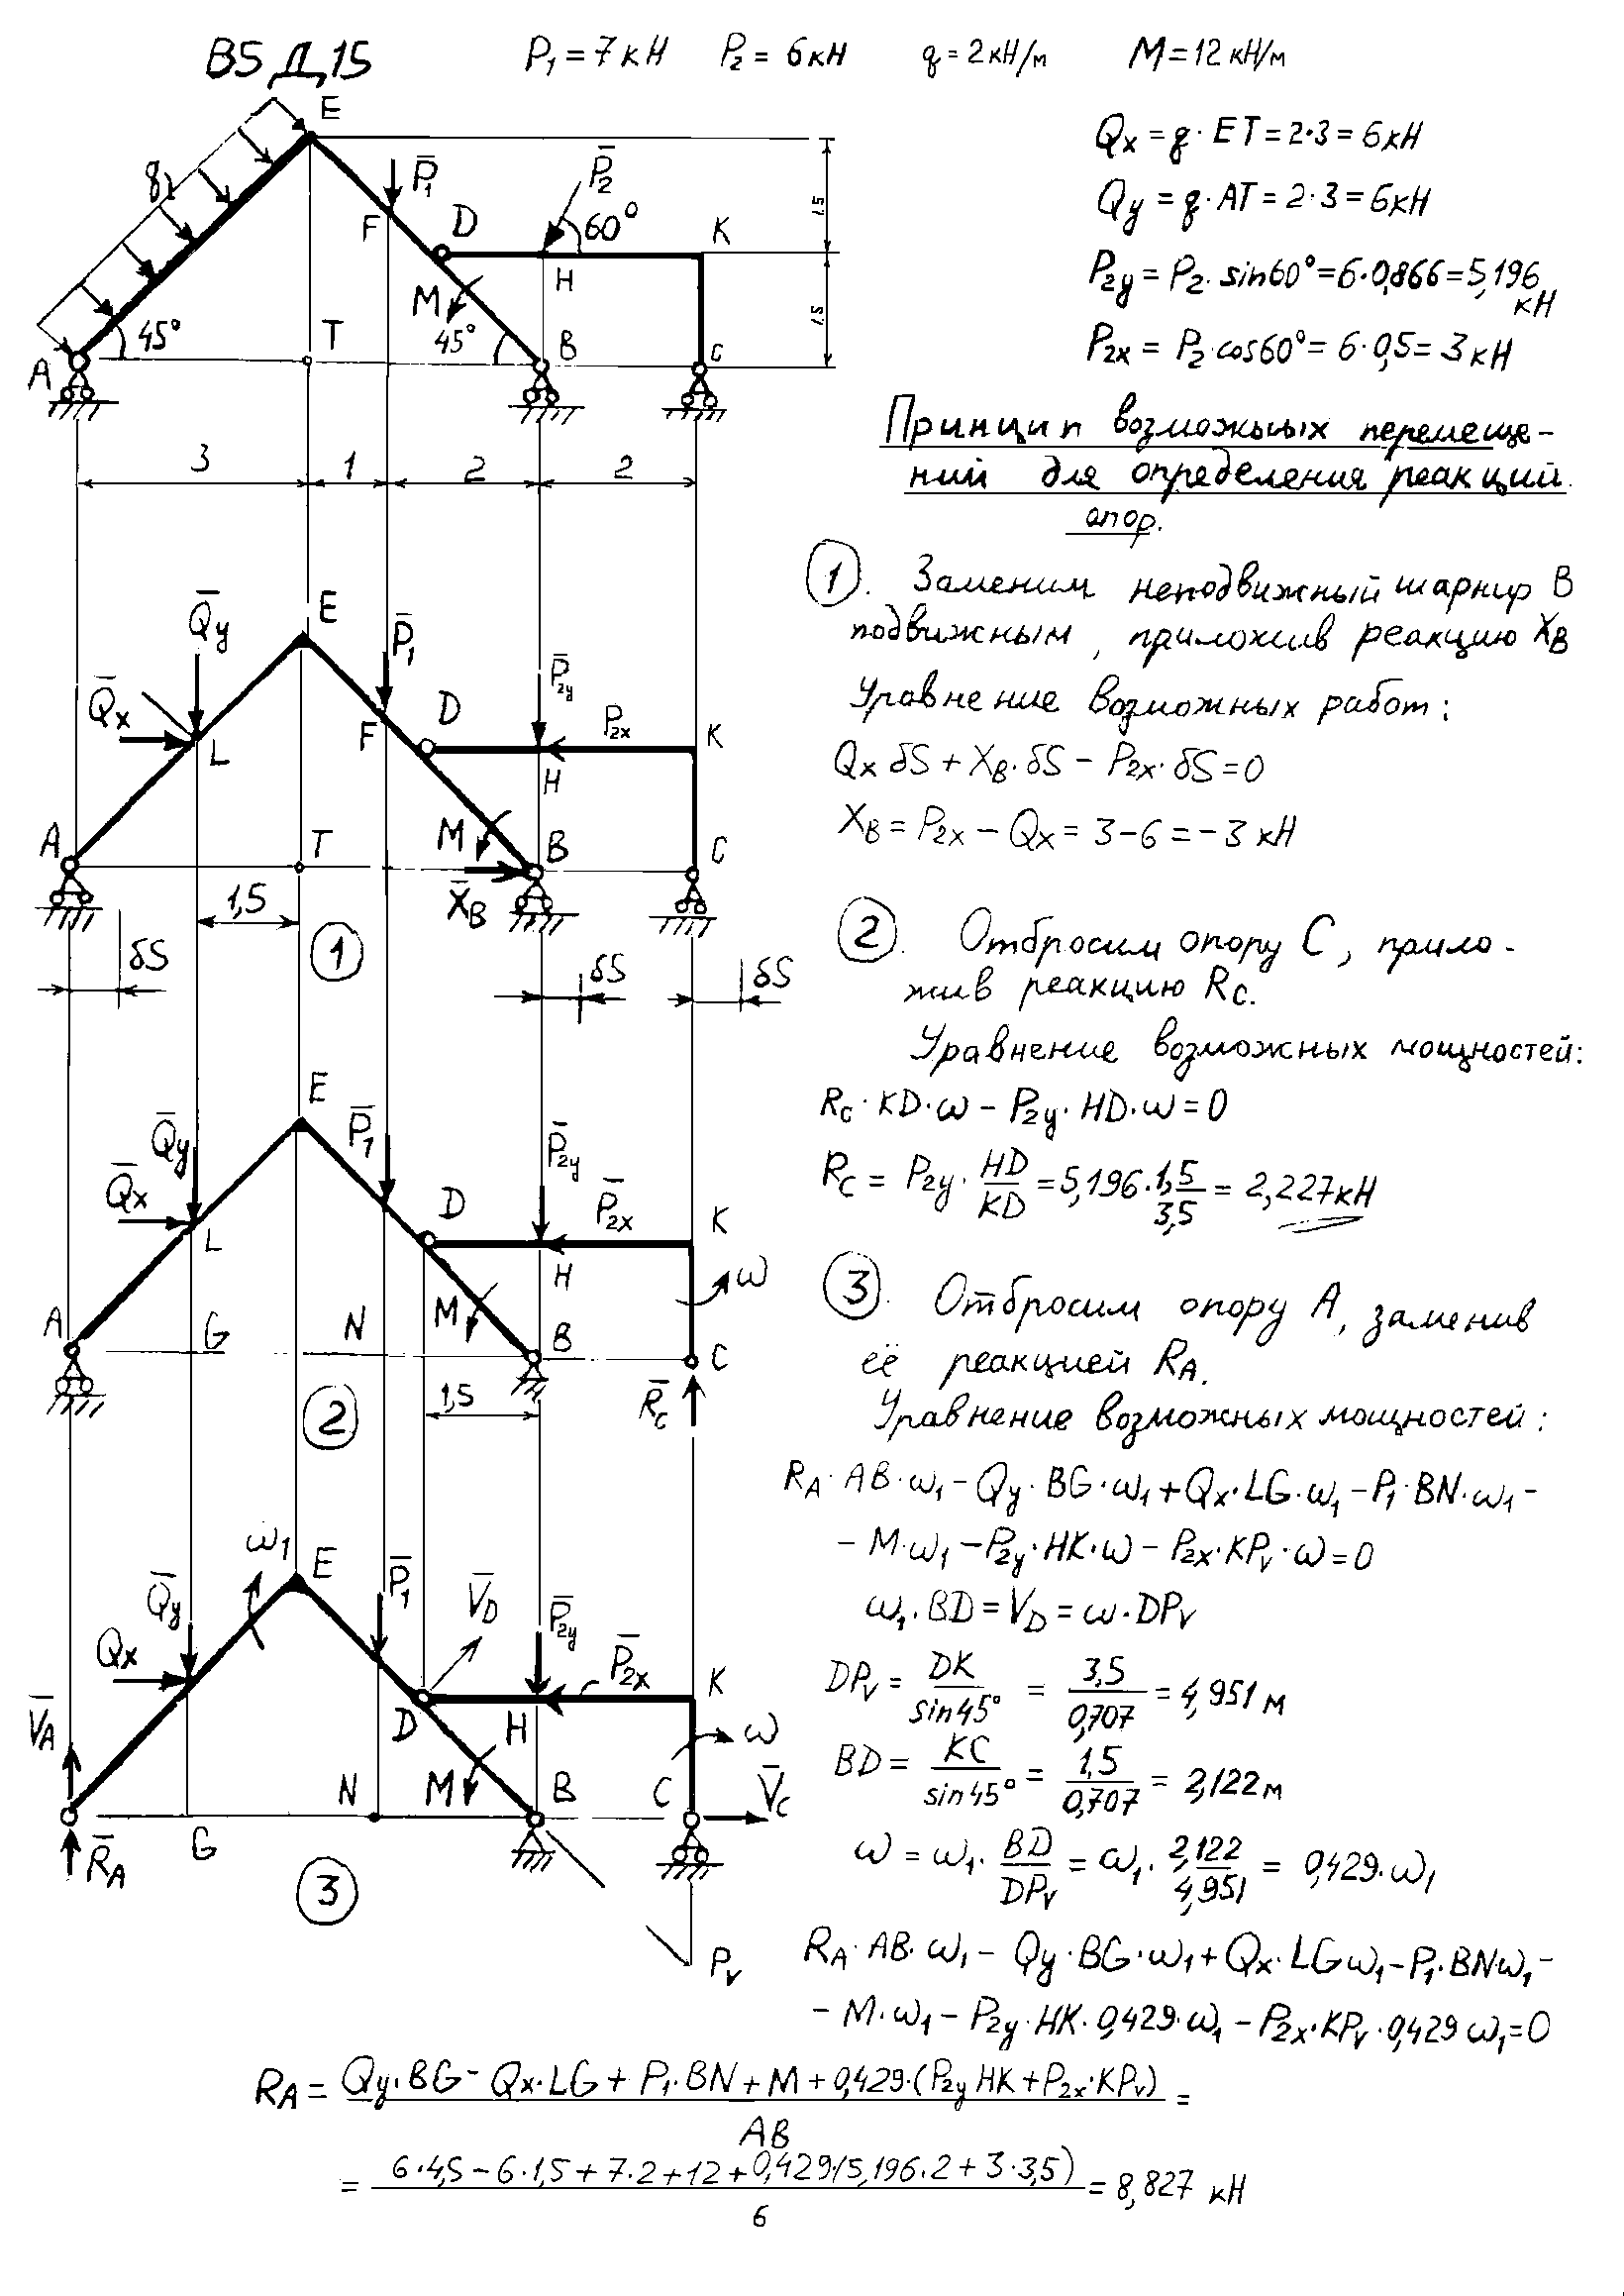 В5 Д15 P₁ = 7 кН P₂ = 6 кН q = 2 кН/м M = 12 кН/м
Qx = q · ET = 2·3 = 6 кН
Qy = q · AT = 2·3 = 6 кН
P₂y = P₂ · sin60° = 6·0,866 = 5,196 кН
P₂x = P₂ · cos60° = 6·0,5 = 3 кН
E
q
P̄₁
P̄₂
60°
F
D
H
K
M
45°
T
45°
A
B
C
1.5
1.5
3 1 2 2
Принцип возможных перемеще-
ний для определения реакций
опор.
① . Заменим неподвижный шарнир В
подвижным, приложив реакцию XB
Уравнение возможных работ:
Qx δS + XB · δS − P₂x · δS = 0
XB = P₂x − Qx = 3 − 6 = −3 кН
Q̄y E P̄₁
P̄₂y
Q̄x L F D P₂x K
H
A T M B C
X̄B
1,5
① δS δS δS
② . Отбросим опору С, прило-
жив реакцию RC.
Уравнение возможных мощностей:
RC · KD · ω − P₂y · HD · ω = 0
RC = P₂y · HD/KD = 5,196 · 1,5/3,5 = 2,227 кН
E
Q̄y P̄₁ P̄₂y
Q̄x L D P̄₂x K
H ω
A G N M B C
1,5
② R̄C
③ . Отбросим опору А, заменив
её реакцией RA.
Уравнение возможных мощностей:
RA · AB · ω₁ − Qy · BG · ω₁ + Qx · LG · ω₁ − P₁ · BN · ω₁ −
− M · ω₁ − P₂y · HK · ω − P₂x · KPv · ω = 0
ω₁ · BD = VD = ω · DPv
DPv = DK/sin45° = 3,5/0,707 = 4,951 м
BD = KC/sin45° = 1,5/0,707 = 2,122 м
ω = ω₁ · BD/DPv = ω₁ · 2,122/4,951 = 0,429 · ω₁
ω₁ E
Q̄y P̄₁ V̄D P̄₂y
Qx P̄₂x K
V̄A D H ω
N M B C V̄C
R̄A G
③
Pv
RA · AB · ω₁ − Qy · BG · ω₁ + Qx · LG ω₁ − P₁ · BN ω₁ −
− M · ω₁ − P₂y · HK · 0,429 · ω₁ − P₂x · KPv · 0,429 ω₁ = 0
RA = Qy · BG − Qx · LG + P₁ · BN + M + 0,429 · (P₂y HK + P₂x · KPv) =
AB
= 6·4,5 − 6·1,5 + 7·2 + 12 + 0,429 (5,196·2 + 3·3,5) = 8,827 кН
6